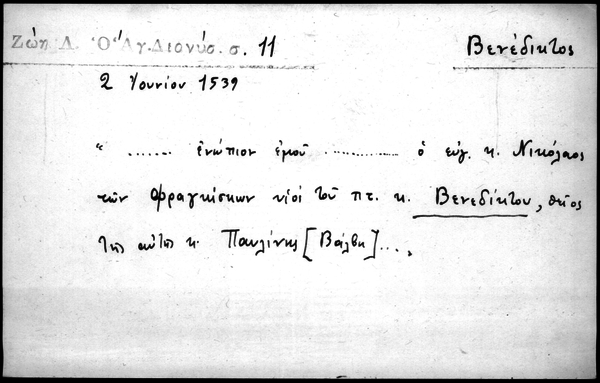 Ζώη Λ. Ὁ Ἅγ. Διονύσ. σ. 11
Βενέδικτος
2 Ἰουνίου 1539
“ ....... ἐνώπιον ἐμοῦ ............. ὁ εὐγ. κ. Νικόλαος
τῶν Φραγκίσκων υἱοί τοῦ πτ. κ. Βενεδίκτου, θεῖος
τῆς αὐτῆς κ. Παυλίνης [Βάλβη]....